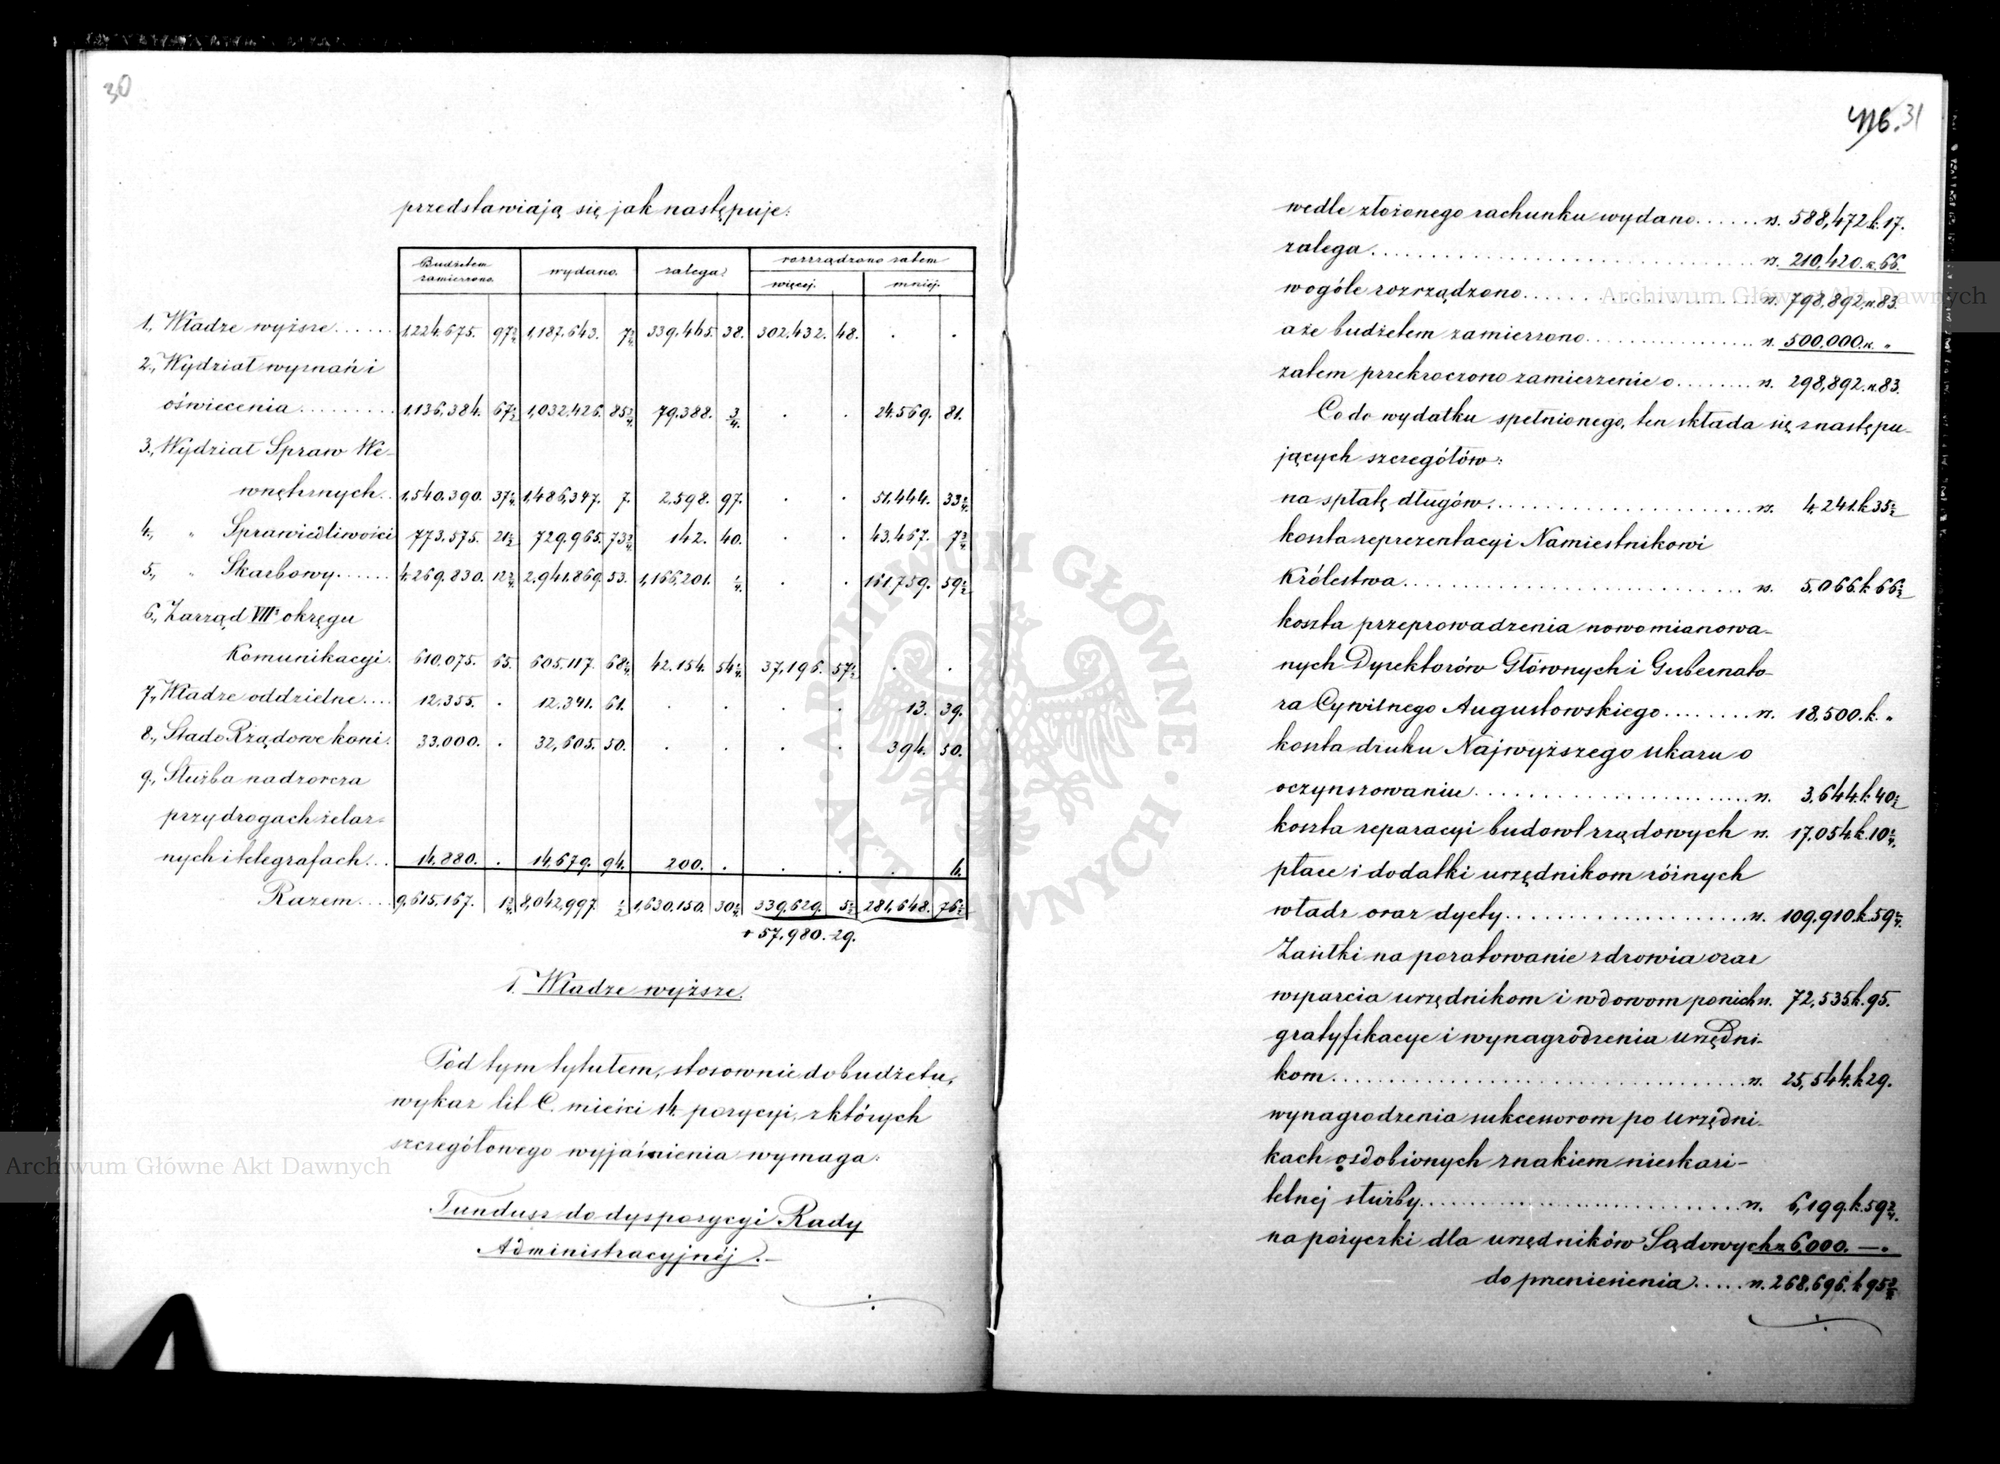 30
przedstawiają się jak następuje:
Budżetem zamierzono. wydano. zalega: rozrządzono zatem
więcej. mniej.
1., Władze wyższe...... 1,224,675. 97 2/4 1,187,643. 7 2/4 339,465. 38. 302,432. 48. . .
2., Wydział wyznań i
oświecenia......... 1,136,384. 67 2/4 1,032,426. 85 2/4 79,388. 3/4. . . 24,569. 81.
3., Wydział Spraw We-
wnętrznych.. 1,540,390. 37 2/4 1,486,347. 7. 2,598. 97. . . 51,444. 33 2/4.
4., " Sprawiedliwości 773,575. 21 2/4 729,965. 73 3/4 142. 40. . . 43,467. 7 3/4
5., " Skarbowy...... 4,269,830. 12 3/4 2,941,869. 53. 1,166,201. 1/4. . . 161,759. 59 2/4
6., Zarząd VIIIo okręgu
Komunikacyi. 610,075. 65. 605,117. 68 1/4 42,154. 54 1/4. 37,196. 57 2/4 . .
7., Władze oddzielne.... 12,355. . 12,341. 61. . . . . 13. 39.
8., Stado Rządowe koni. 33,000. . 32,605. 50. . . . . 394. 50.
9., Służba nadzorcza
przy drogach żelaz-
nych i telegrafach... 14,880. . 14,679. 94. 200. . . . . 6.
Razem.... 9,615,167. 1 3/4 8,042,997. 2/4 1,630,150. 30 2/4 339,629. 5 2/4 281,648. 76 2/4
+ 57,980. 29.
I. Władze wyższe.
Pod tym tytułem, stosownie do budżetu,
wykaz lit C. mieści 14. pozycyi, z których
szczegółowego wyjaśnienia wymaga:
Fundusz do dyspozycyi Rady
Administracyjnéj.—
116. 31
wedle złożonego rachunku wydano...... rs. 588,472 k. 17.
zalega.................................... rs. 210,420. k. 66.
wogóle rozrządzono...................... rs. 798,892. k. 83.
a że budżetem zamierzono................. rs. 500,000. k. "
zatem przekroczono zamierzenie o........ rs. 298,892. k 83.
Co do wydatku spełnionego, ten składa się z następu-
jących szczegółów:
na spłatę długów........................ rs. 4,241. k 35 2/4
koszta reprezentacyi Namiestnikowi
Królestwa.............................. rs. 5,066. k 66 2/4
koszta przeprowadzenia nowomianowa-
nych Dyrektorów Głównych i Gubernato-
ra Cywilnego Augustowskiego........ rs. 18,500. k. "
koszta druku Najwyższego ukazu o
oczynszowaniu......................... rs. 3,644. k. 40 2/4
koszta reparacyi budowl rządowych rs. 17,054. k. 10 1/4.
płace i dodatki urzędnikom różnych
władz oraz dyety...................... rs. 109,910. k. 59 2/4.
Zasiłki na poratowanie zdrowia oraz
wsparcia urzędnikom i wdowom po nich rs. 72,535. k. 95.
gratyfikacye i wynagrodzenia urzędni-
kom..................................... rs. 25,544. k 29.
wynagrodzenia sukcessorom po urzędni-
kach ozdobionych znakiem nieskazi-
telnej służby............................ rs. 6,199. k. 59 2/4.
na pożyczki dla urzędników Sądowych rs. 6,000. —.
do przeniesienia..... rs. 268,696. k 95 3/4
Archiwum Główne Akt Dawnych
Archiwum Główne Akt Dawnych
ARCHIWUM GŁÓWNE · AKT DAWNYCH ·